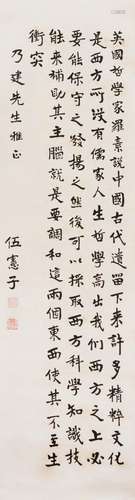 英國哲學家羅素說中國古代遺留下來許多精粹文化
是西方所沒有儒家人生哲學高出我們西方之上必
要能保守之發揚之然後可以採取西方科學知識技
能來補助其主腦就是要調和這兩個東西使其不生
衝突
乃建先生雅正
伍憲子